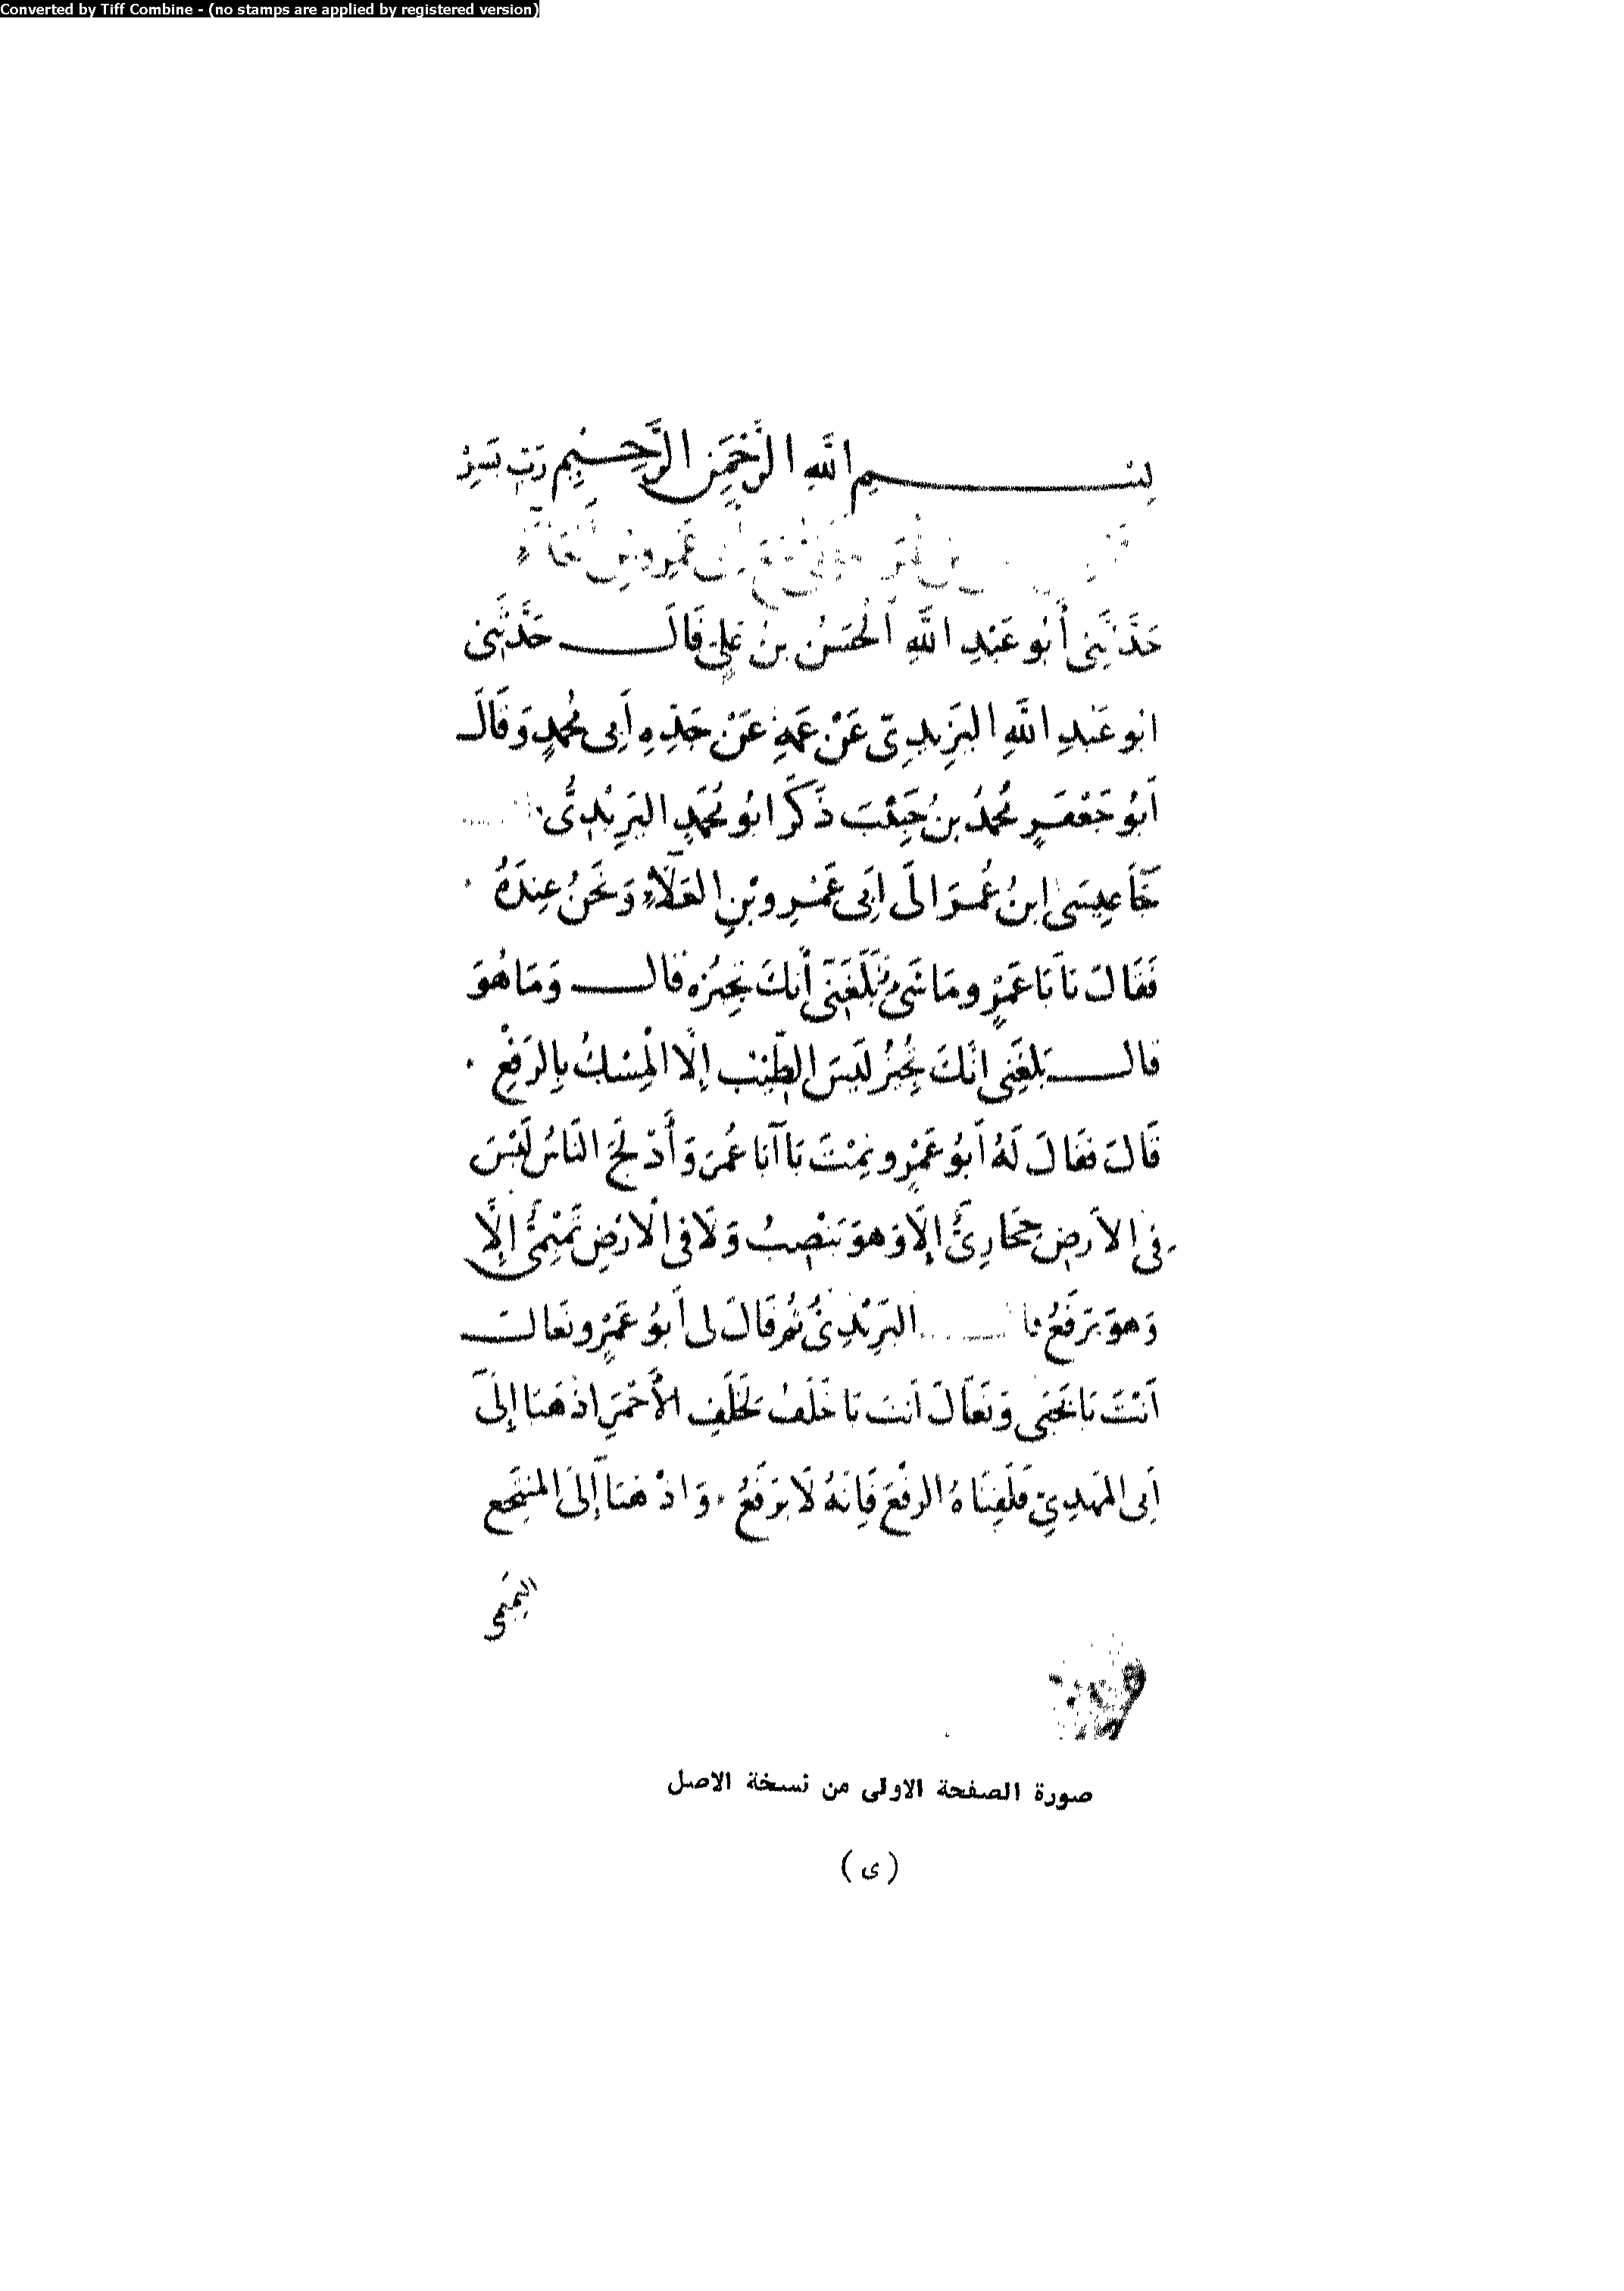 Converted by Tiff Combine - (no stamps are applied by registered version)
بِسْمِ اللَّهِ الرَّحْمَنِ الرَّحِيمِ رَبِّ يَسِّرْ
عَمْرِو بْنِ
حَدَّثَنِي أَبُو عَبْدِ اللَّهِ الْحَسَنُ بنُ عَلِيٍّ قَالَ حَدَّثَنِي
ابو عَبْدِ اللَّهِ اليَزِيدِيّ عَنْ عَمِّهِ عَنْ جَدِّهِ أَبِي مُحَمدٍ وَقَالَ
أَبُو جَعْفَرٍ مُحمدُ بنُ حَبِيْبَ ذَكَرَ ابُو مُحَمَّدٍ اليَزِيْدِيُّ
جَآءَ عِيسَى ابنُ عُمَرَ الَى أَبِي عَمْرِو بْنِ العَلَآءِ وَنَحْنُ عِندَهُ
فَقَالَ يَا أبَا عَمْرٍو مَا شَيْءٌ بَلَغَنِي أَنكَ تُجِيزُهُ قال وَمَا هُوَ
قال بَلَغَنِي انَّكَ تُجِيْزُ لَيْسَ الطِّيْبُ إلَّا الْمِسْكُ بِالرَفْعِ
قَالَ فقَالَ لَهُ أَبُو عَمْرٍو نِمْتَ يَا أبَا عُمَرَ وَأَدْلَجَ النَاسُ لَيْسَ
فِي الأَرضِ حِجَازِيٌّ إلَّا وَهوَ يَنْصِبُ وَلَا في الْأرْضِ تَمِيْمِيٌّ إلَّا
وَهوَ يَرْفَعُ قال اليَزِيْدِيُّ ثُمَّ قَالَ لي أَبُو عَمْرٍو تَعَالَ
أَنْتَ يَا يَحْيَى وَتَعَالَ أَنتَ يَا خَلَفُ لِخَلَفٍ الأَحْمَرِ اذهَبَا إلَى
أَبِي المَهدِيّ فَلَقِّنَاهُ الرفْعَ فَإنَهُ لَا يَرْفَعُ وَاذْهَبَا إلَى المُنْتَجِع
التميمي
صورة الصفحة الاولى من نسخة الاصل
( ى )